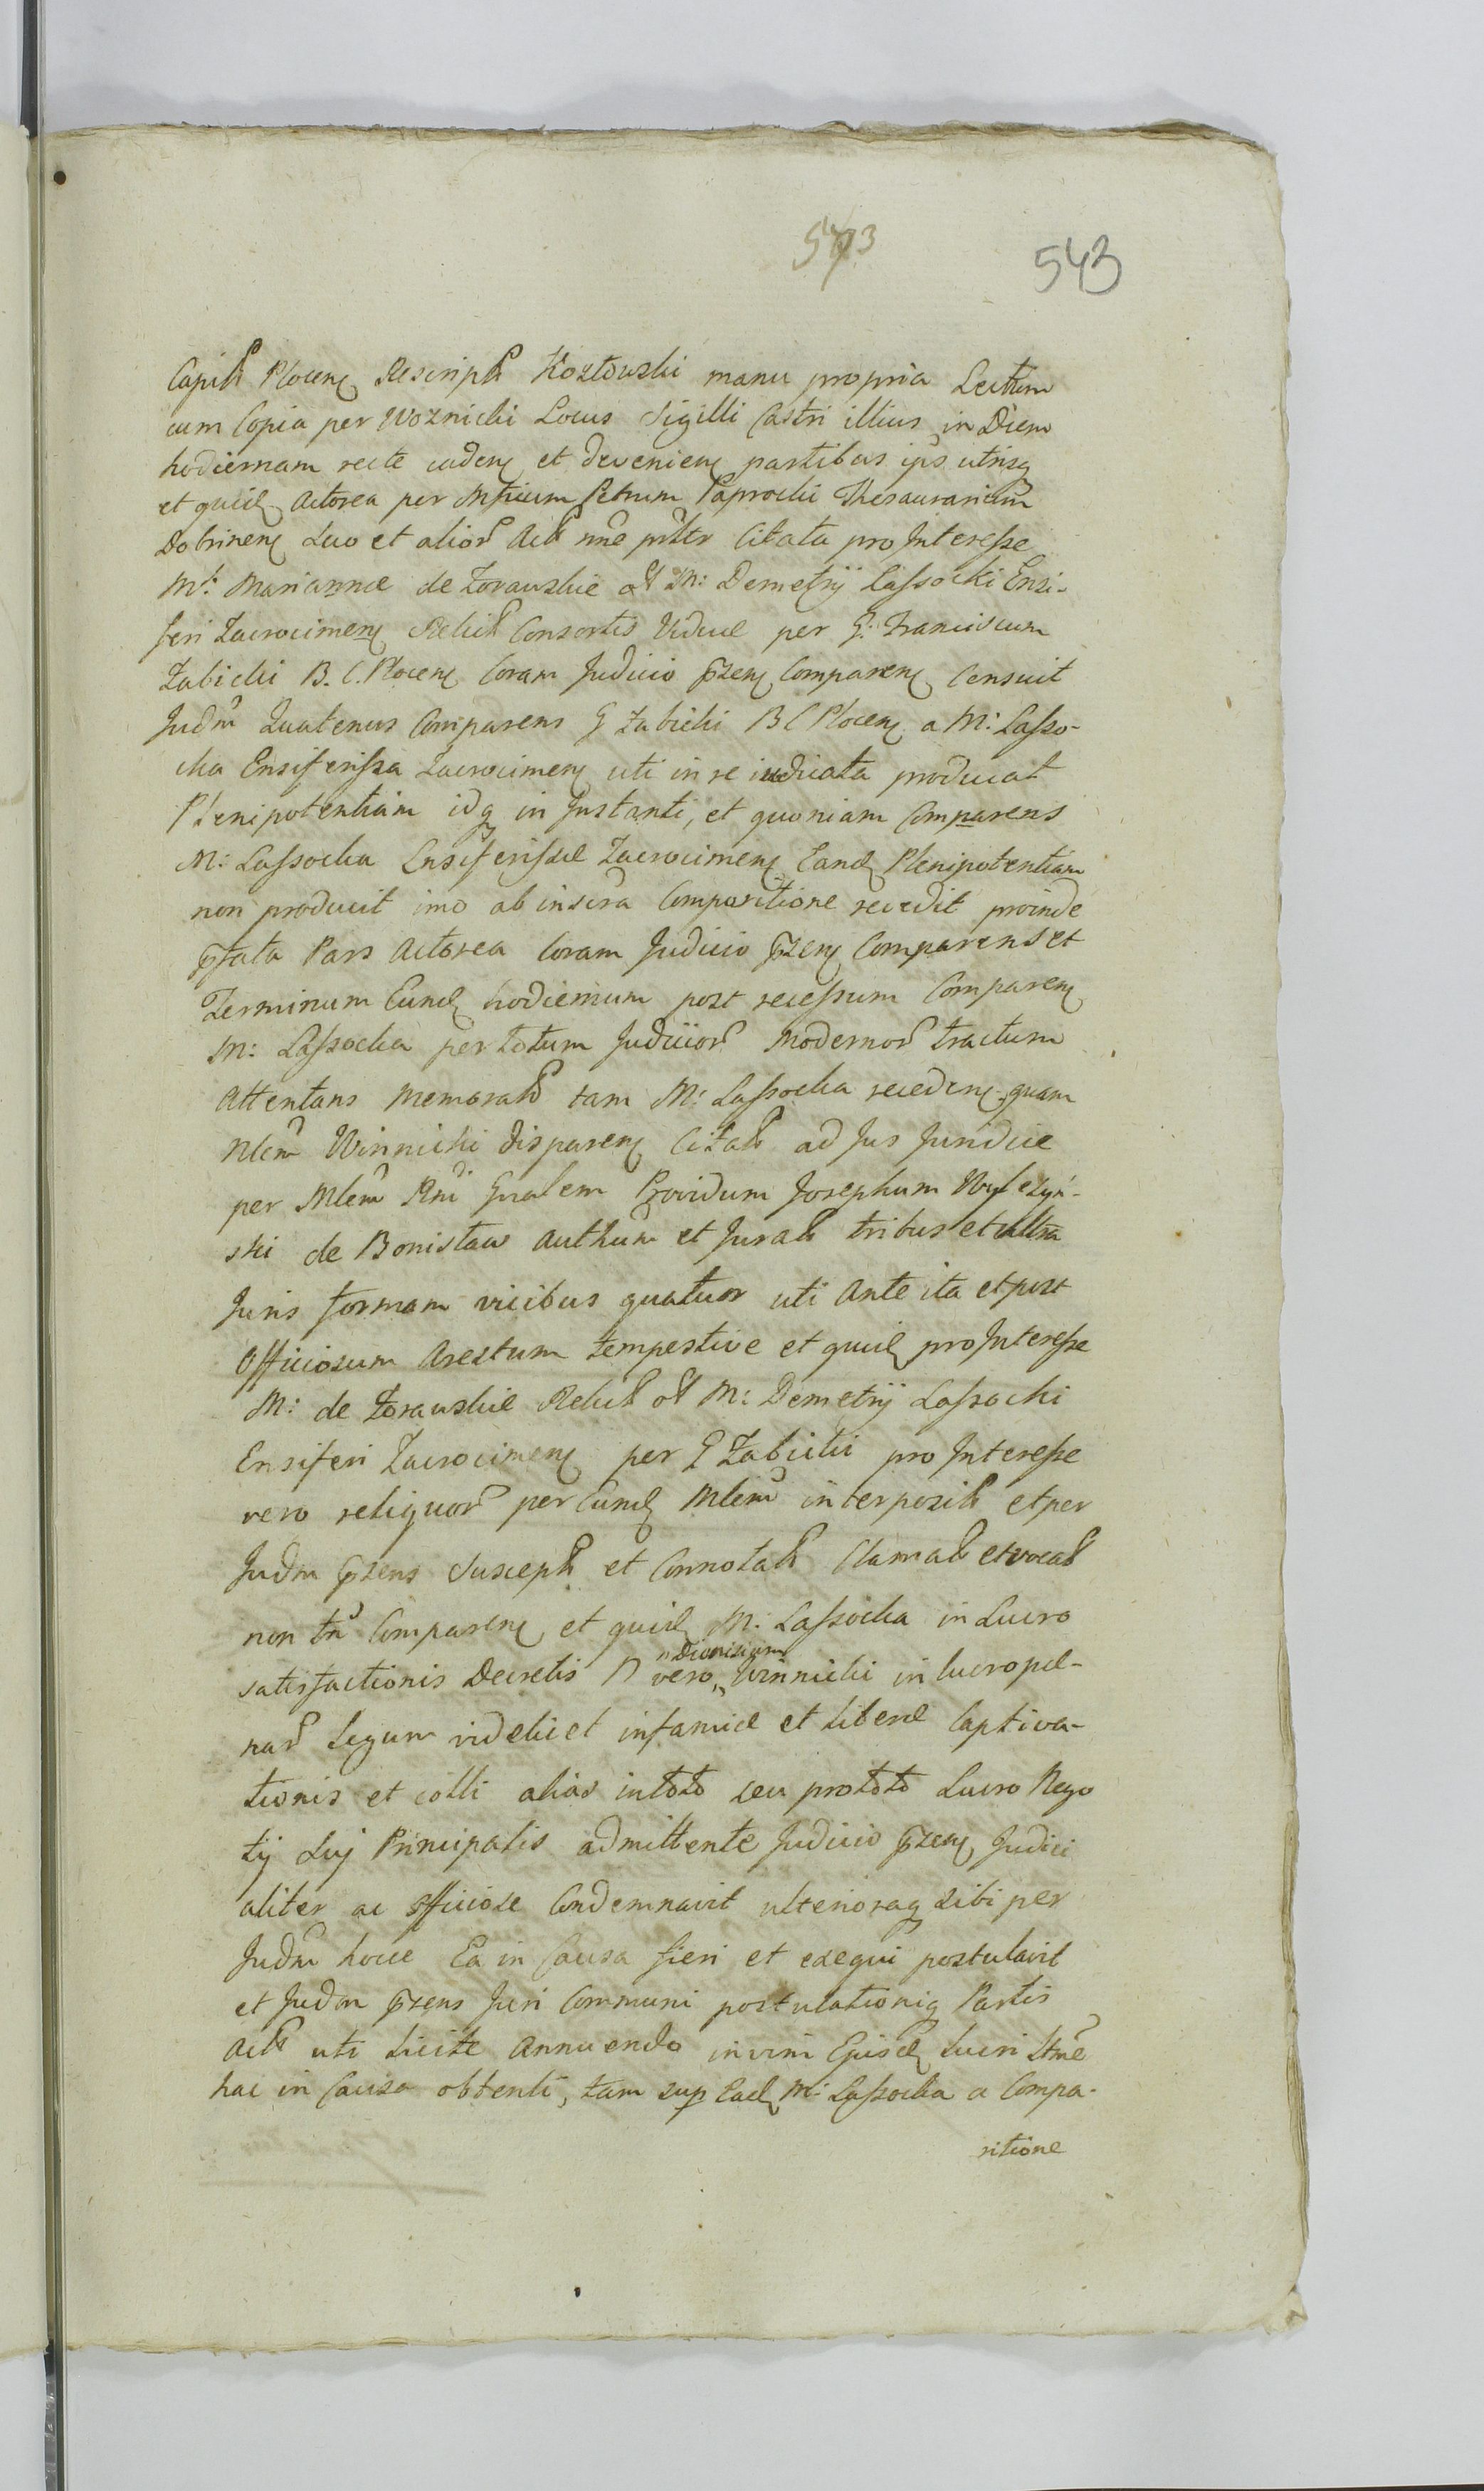 573
543
Capitt Plocen Rescriptt Kozłowski manu propria Lectum
cum Copia per Woznicki Locus Sigilli Castri illius in Diem
hodiernam recte caden et devenien partibus ips utrisq
et quid Actorea per Mficum Petrum Paprocki Thesaurarium
Dobrinen Suo et alior Act nne prlter Citata pro Interesse
M: Mariannæ de Zorawskie ol M: Demetrij Lassocki Ensi-
feri Zacrocimen Relict Consortis Viduæ per G: Franciscum
Zabicki B. C. Plocen Coram Judicio pzen Comparen Censuit
Judm Quatenus Comparens G Zabicki B C Plocen a M: Lasso-
cka Ensiferissa Zacrocimen uti in re iudicata producat
Plenipotentiam idq in Instanti, et quoniam Comparens
M: Lassocka Ensiferissæ Zacrocimen Eand Plenipotentiam
non producit imo ab insura Comparitione recedit proinde
pfata Pars Actorea Coram Judicio pzen Comparens et
Terminum Eund hodiernum post recessum Comparen
M: Lassocka per totum Judicior Modernor tractum
Attentans Memoratt tam M: Lassocka receden quam
Nlem Winnicki disparen Citatt ad Jus Juridice
per Mlem Rni Gnalem Providum Josephum Wylezyń-
ski de Bonisław Authum et Juratt tribus et ultra
Juris formam vicibus quatuor uti Ante ita et post
Officiosum Arestum tempestive et quid pro Interesse
M: de Zorawskie Relict ol M: Demetrij Lassocki
Ensiferi Zacrocimen per G Zabicki pro Interesse
vero reliquor per Eund Mlem interpositt et per
Judm pzens Susceptt et Connotatt Clamatt et vocatt
non tn Comparen et quid M: Lassocka in Lucro
satisfactionis Decretis N vero "Dionisium" Winnicki in lucro pæ-
nar Legum videlicet infamiæ et Liberæ Captiva-
tionis et colli alias in toto seu pro toto Lucro Nego
tij Suj Principalis admittente Judicio pzen Judici
aliter ac officiose Condemnavit ulterioraq sibi per
Judm hocce Ea in Causa fieri et exequi postulavit
et Judm pzens Juri Communi postulationiq Partis
Act uti Licite Annuendo in vim Ejusd Lucri Ittme
hac in Causa obtenti, tam sup Ead M: Lassocka a Compa-
ritione